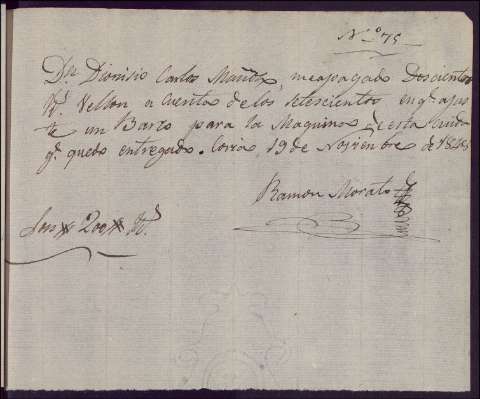 Nº 75
Dn. Dionisio Carlos Muñoz, me a pagado Doscientos
Rs. Vellon a cuenta de los seiscientos en q. ajus
te un Barzo para la Maquina de esta Ciudad
q. quedo entregado. Coria, 19 de Noviembre de
Ramon Morato
Son 200 Rs.